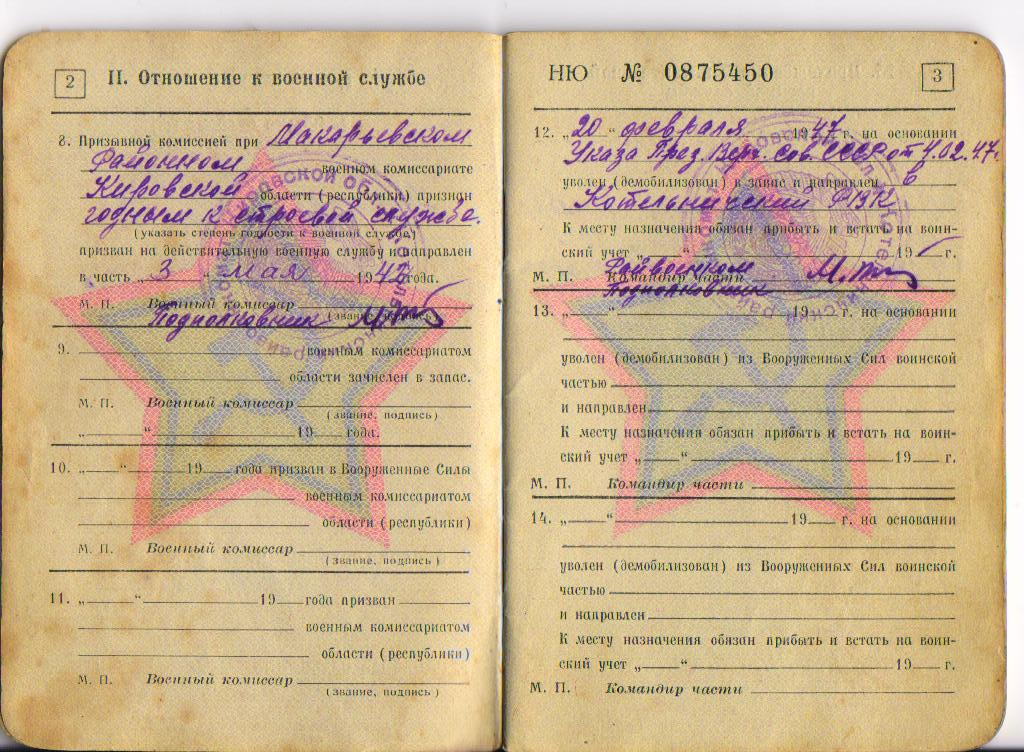 2
II. Отношение к военной службе
8. Призывной комиссией при Макарьевском
Районном военном комиссариате
Кировской области (республики) признан
годным к строевой службе.
(указать степень годности к военной службе,)
призван на действительную военную службу и направлен
в часть „3“ мая 1942 года.
М. П. Военный комиссар
(звание, подпись)
Подполковник
9. военным комиссариатом
области зачислен в запас.
М. П. Военный комиссар
(звание, подпись)
„ “ 19 года.
10. „ “ 19 года призван в Вооруженные Силы
военным комиссариатом
области (республики)
М. П. Военный комиссар
(звание, подпись)
11. „ “ 19 года призван
военным комиссариатом
области (республики)
М. П. Военный комиссар
(звание, подпись)
НЮ № 0875450
3
12. „20“ февраля 1947 г. на основании
Указа През. Верх. Сов. СССР от 4.02.47г.
уволен (демобилизован) в запас и направлен в
Котельнический РВК
К месту назначения обязан прибыть и встать на воин-
ский учет „ “ 19 г.
Райвоенком
М. П. Командир части
Подполковник
13. „ “ 19 г. на основании
уволен (демобилизован) из Вооруженных Сил воинской
частью
и направлен
К месту назначения обязан прибыть и встать на воин-
ский учет „ “ 19 г.
М. П. Командир части
14. „ “ 19 г. на основании
уволен (демобилизован) из Вооруженных Сил воинской
частью
и направлен
К месту назначения обязан прибыть и встать на воин-
ский учет „ “ 19 г.
М. П. Командир части